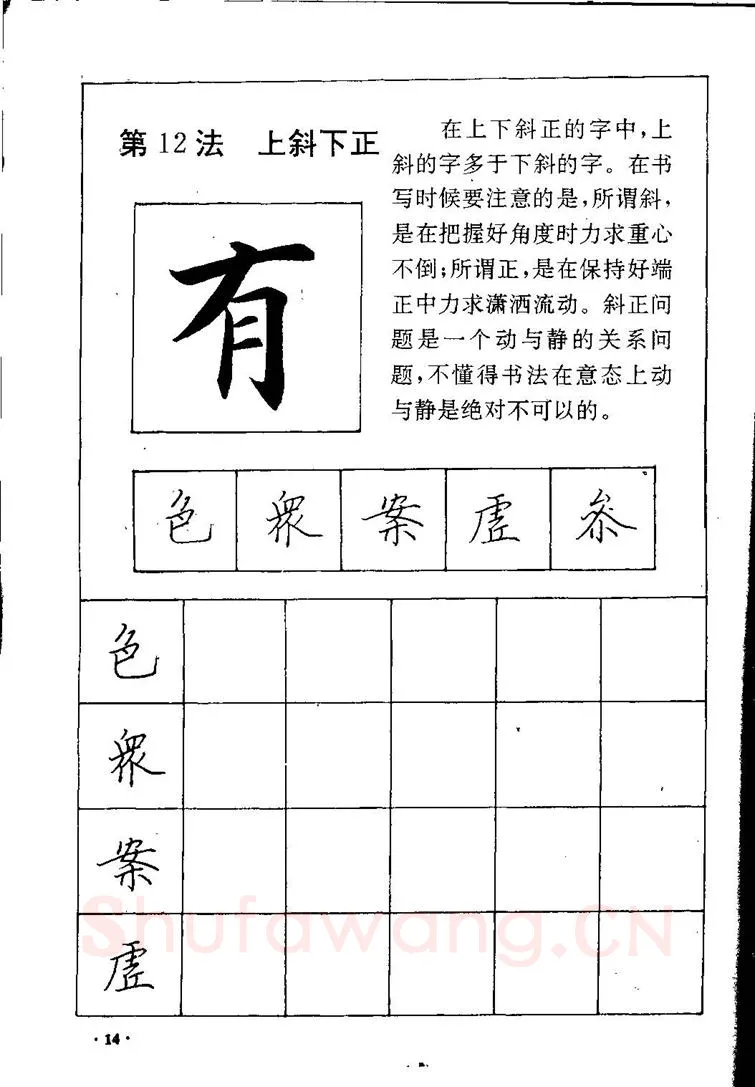 第12法 上斜下正
在上下斜正的字中,上
斜的字多于下斜的字。在书
写时候要注意的是,所谓斜,
是在把握好角度时力求重心
不倒;所谓正,是在保持好端
正中力求潇洒流动。斜正问
题是一个动与静的关系问
题,不懂得书法在意态上动
与静是绝对不可以的。
有
色 眾 案 虚 参
色
眾
案
虚
Shufawang.CN
·14·